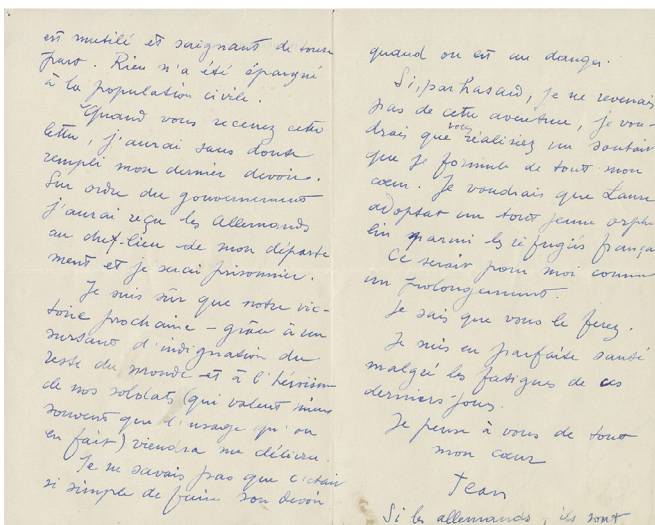 est mutilé et saignant de toute
part. Rien n'a été épargné
à la population civile.
Quand vous recevrez cette
lettre, j'aurai sans doute
rempli mon dernier devoir.
Sur ordre du gouvernement
j'aurai reçu les Allemands
au chef-lieu de mon départe
ment et je serai prisonnier.
Je suis sûr que notre vic-
toire prochaine – grâce à un
sursaut d'indignation du
reste du monde et à l'héroïsme
de nos soldats (qui valent mieux
souvent que l'usage qu'on
en fait) viendra me délivrer.
Je ne savais pas que c'était
si simple de faire son devoir
quand on est en danger.
Si, par hasard, je ne revenais
pas de cette aventure, je vou-
drais que vous réalisiez un souhait
que je formule de tout mon
cœur. Je voudrais que Laure
adoptat un tout jeune orphe
lin parmi les réfugiés frança
Ce serait pour moi comme
un prolongement.
Je sais que vous le ferez.
Je suis en parfaite santé
malgré les fatigues de ces
derniers jours.
Je pense à vous de tout
mon cœur
Jean
Si les allemands, ils sont